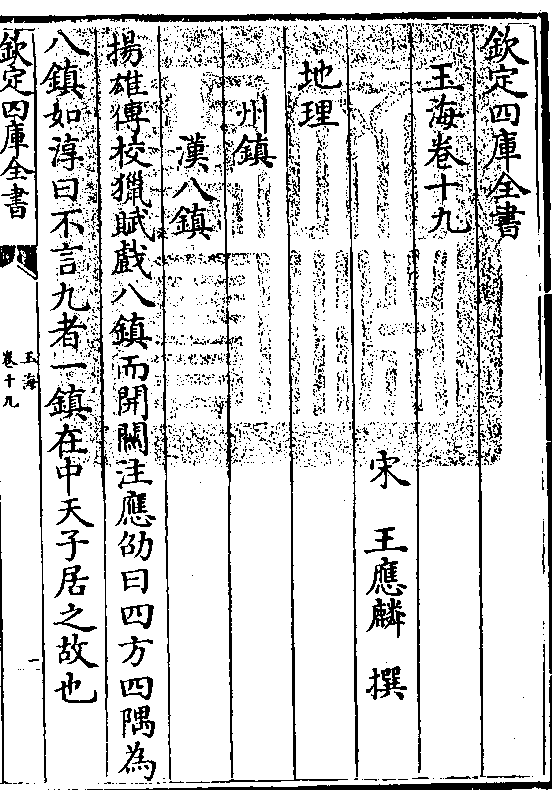 欽定四庫全書
玉海卷十九
宋 王應麟 撰
地理
州鎮
漢八鎮
揚雄傳校獵賦戲八鎮而開關注應劭曰四方四隅為
八鎮如淳曰不言九者一鎮在中天子居之故也
欽定四庫全書
玉海
卷十九
一